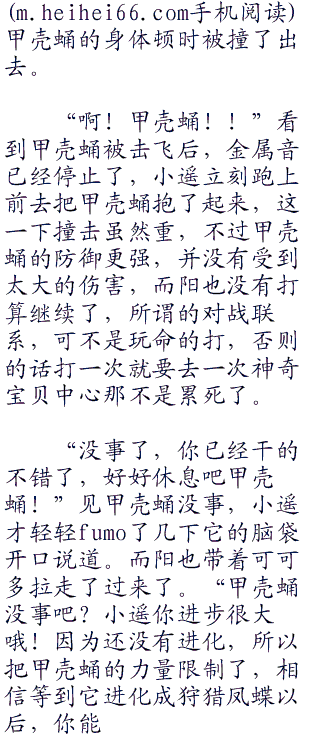 (m.heihei66.com手机阅读)
甲壳蛹的身体顿时被撞了出
去。
“啊！甲壳蛹！！”看
到甲壳蛹被击飞后，金属音
已经停止了，小遥立刻跑上
前去把甲壳蛹抱了起来，这
一下撞击虽然重，不过甲壳
蛹的防御更强，并没有受到
太大的伤害，而阳也没有打
算继续了，所谓的对战联
系，可不是玩命的打，否则
的话打一次就要去一次神奇
宝贝中心那不是累死了。
“没事了，你已经干的
不错了，好好休息吧甲壳
蛹！”见甲壳蛹没事，小遥
才轻轻fumo了几下它的脑袋
开口说道。而阳也带着可可
多拉走了过来了。“甲壳蛹
没事吧？小遥你进步很大
哦！因为还没有进化，所以
把甲壳蛹的力量限制了，相
信等到它进化成狩猎凤蝶以
后，你能